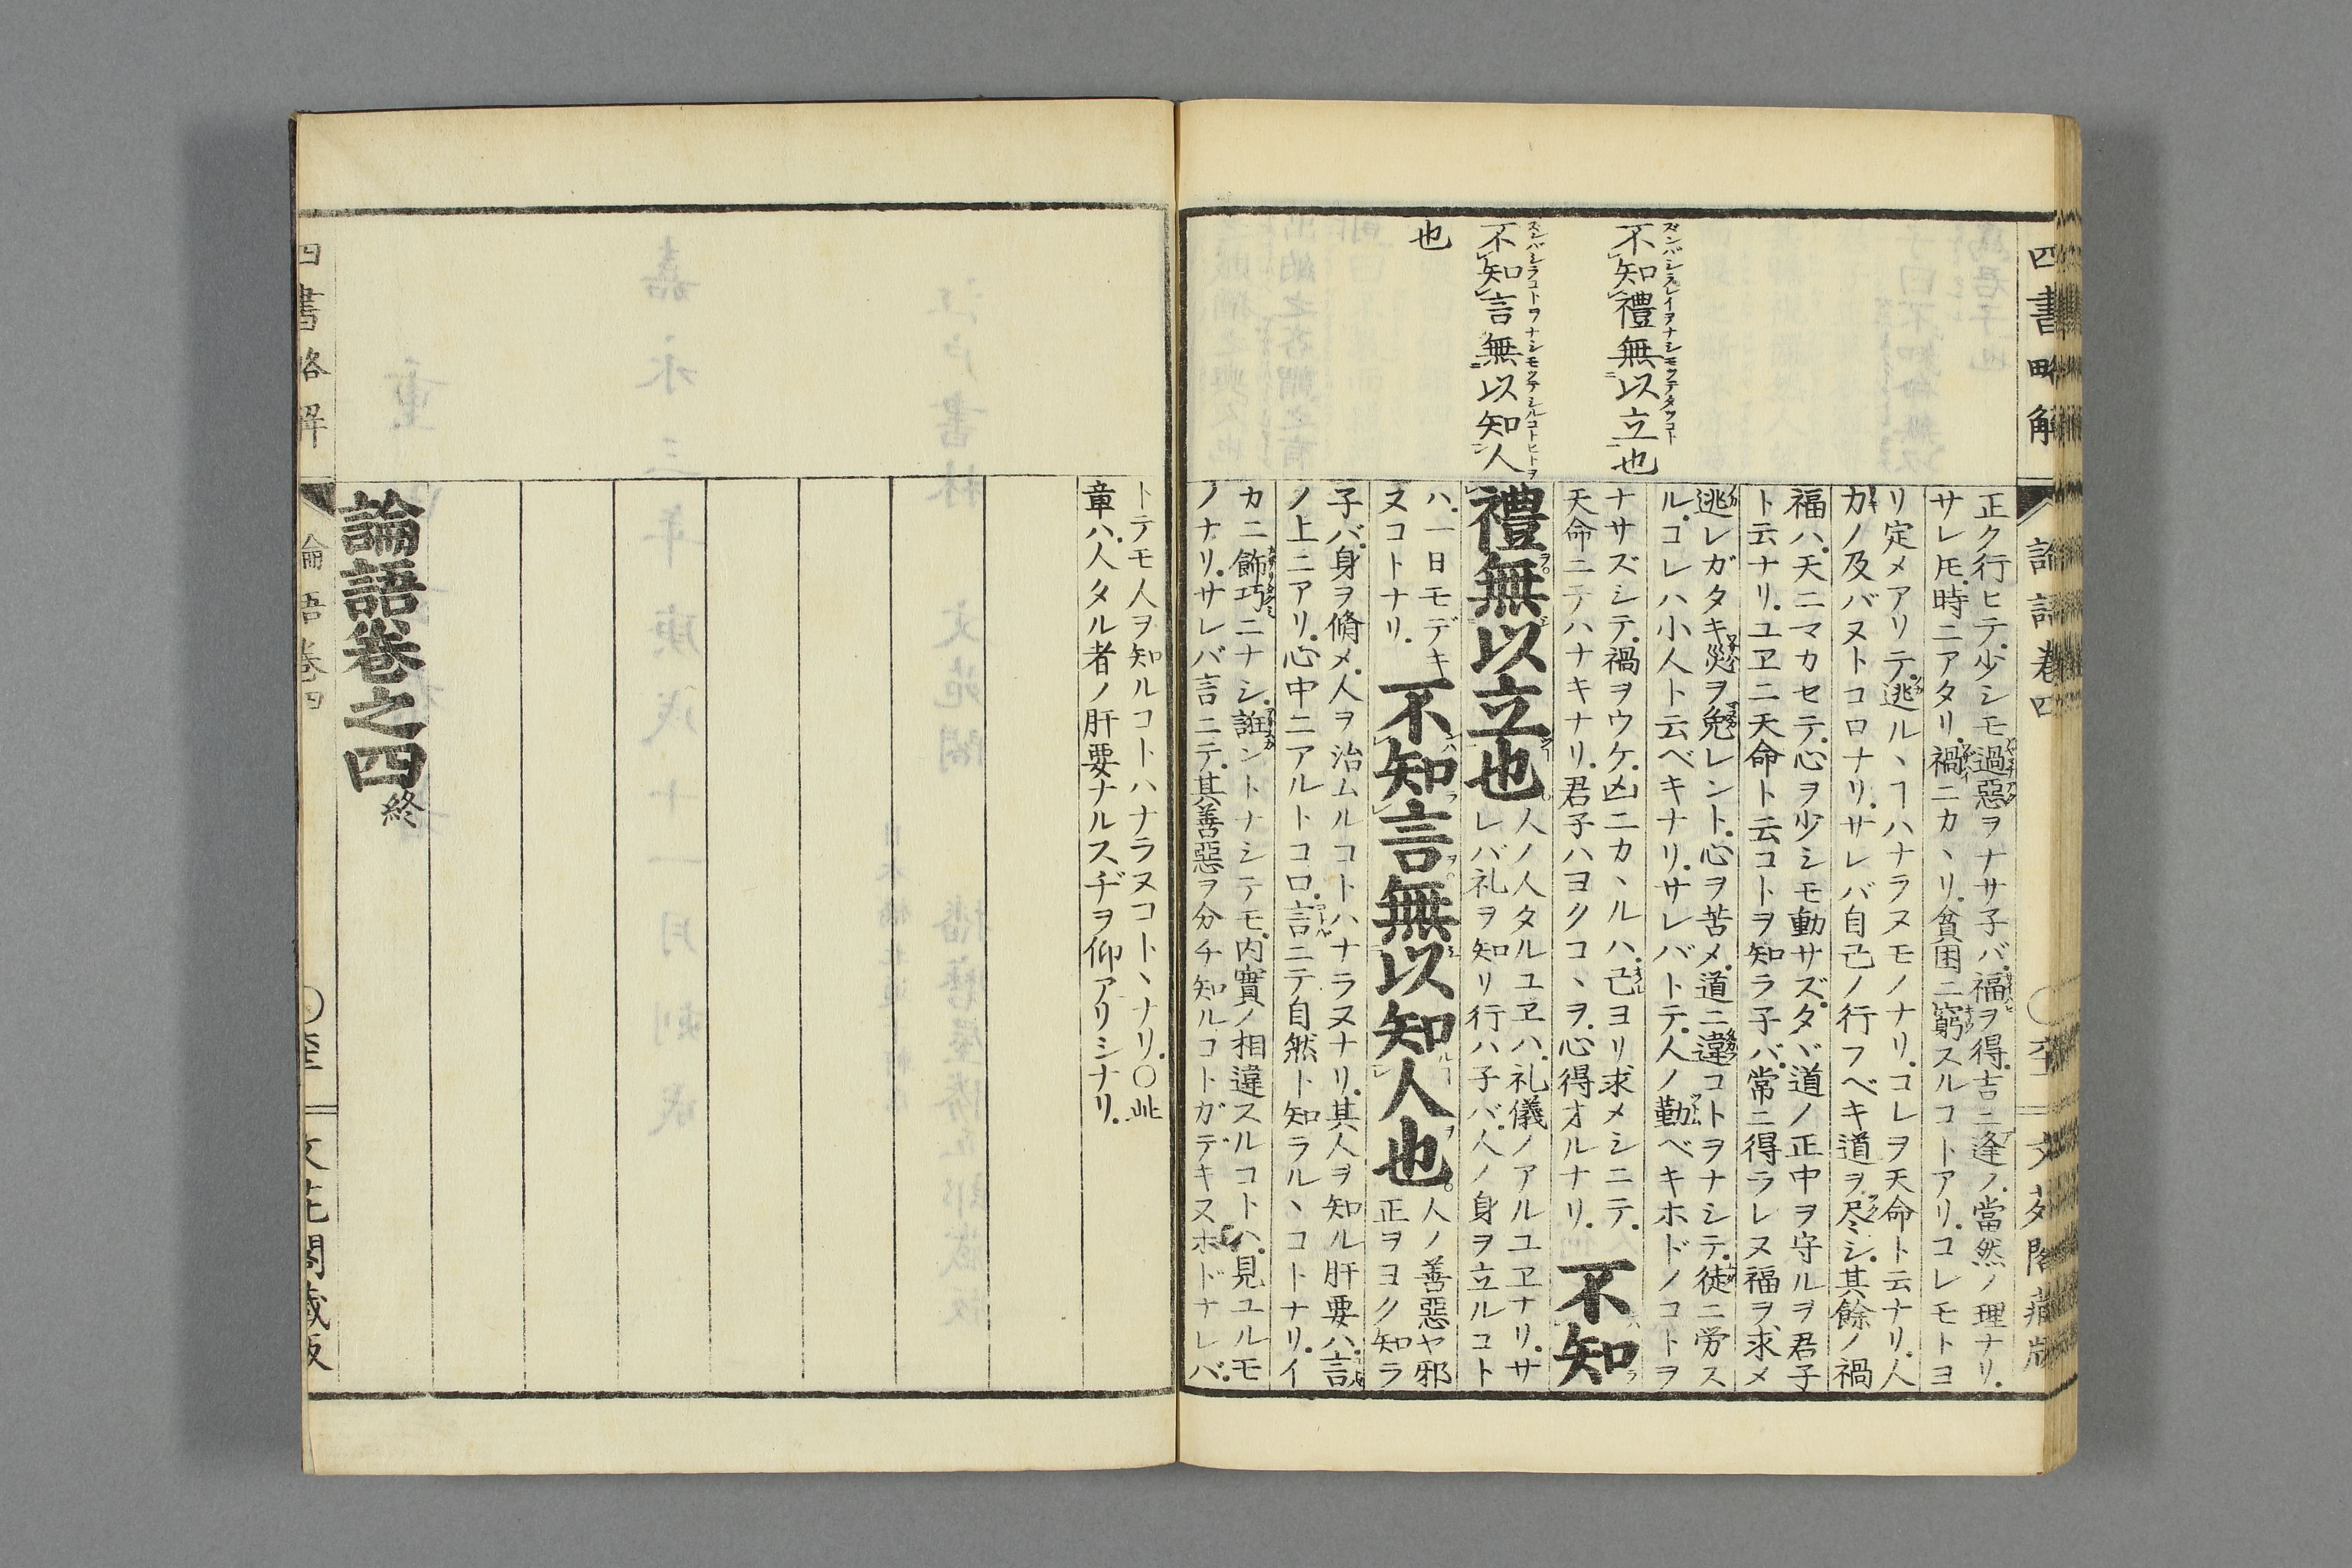 四書略解
論語卷四
不知禮無以立也
不知言無以知人
也
正ク行ヒテ少シモ過惡ヲナサ子バ福ヲ得吉ニ逢ノ當然ノ理ナリ
サレ𪜈時ニアタリ禍ニカヽリ貧困ニ窮スルコトアリコレモトヨ
リ定メアリテ逃ルヽヿハナラヌモノナリコレヲ天命ト云ナリ人
カノ及バヌトコロナリサレバ自己ノ行フベキ道ヲ尽シ其餘ノ禍
福ハ天ニマカセテ心ヲ少シモ動サズタヾ道ノ正中ヲ守ルヲ君子
ト云ナリユヱニ天命ト云コトヲ知ラ子バ常ニ得ラレヌ福ヲ求メ
逃レガタキ災ヲ免レント心ヲ苦メ道ニ違コトヲナシテ徒ニ労ス
ルコレハ小人ト云ベキナリサレバトテ人ノ勤ベキホドノコトヲ
ナサズシテ禍ヲウケ凶ニカヽルハ己ヨリ求メシニテ
天命ニテハナキナリ君子ハヨクコヽヲ心得オルナリ
不知
禮無以立也
人ノ人タルユヱハ礼儀ノアルユヱナリサ
レバ礼ヲ知リ行ハ子バ人ノ身ヲ立ルコト
ハ一日モデキ
ヌコトナリ
不知言無以知人也
人ノ善惡ヤ邪
正ヲヨク知ラ
子バ身ヲ脩メ人ヲ治ムルコトハナラヌナリ其人ヲ知ル肝要ハ言
ノ上ニアリ心中ニアルトコロ言ニテ自然ト知ラルヽコトナリイ
カニ飾巧ニナシ誑ントナシテモ内實ノ相違スルコトハ見ユルモ
ノナリサレバ言ニテ其善惡ヲ分チ知ルコトガデキヌホドナレバ
トテモ人ヲ知ルコトハナラヌコトヽナリ○此
章ハ人タル者ノ肝要ナルスヂヲ仰アリシナリ
論語卷之四終
四書略解
論語卷四
文苑閣藏版